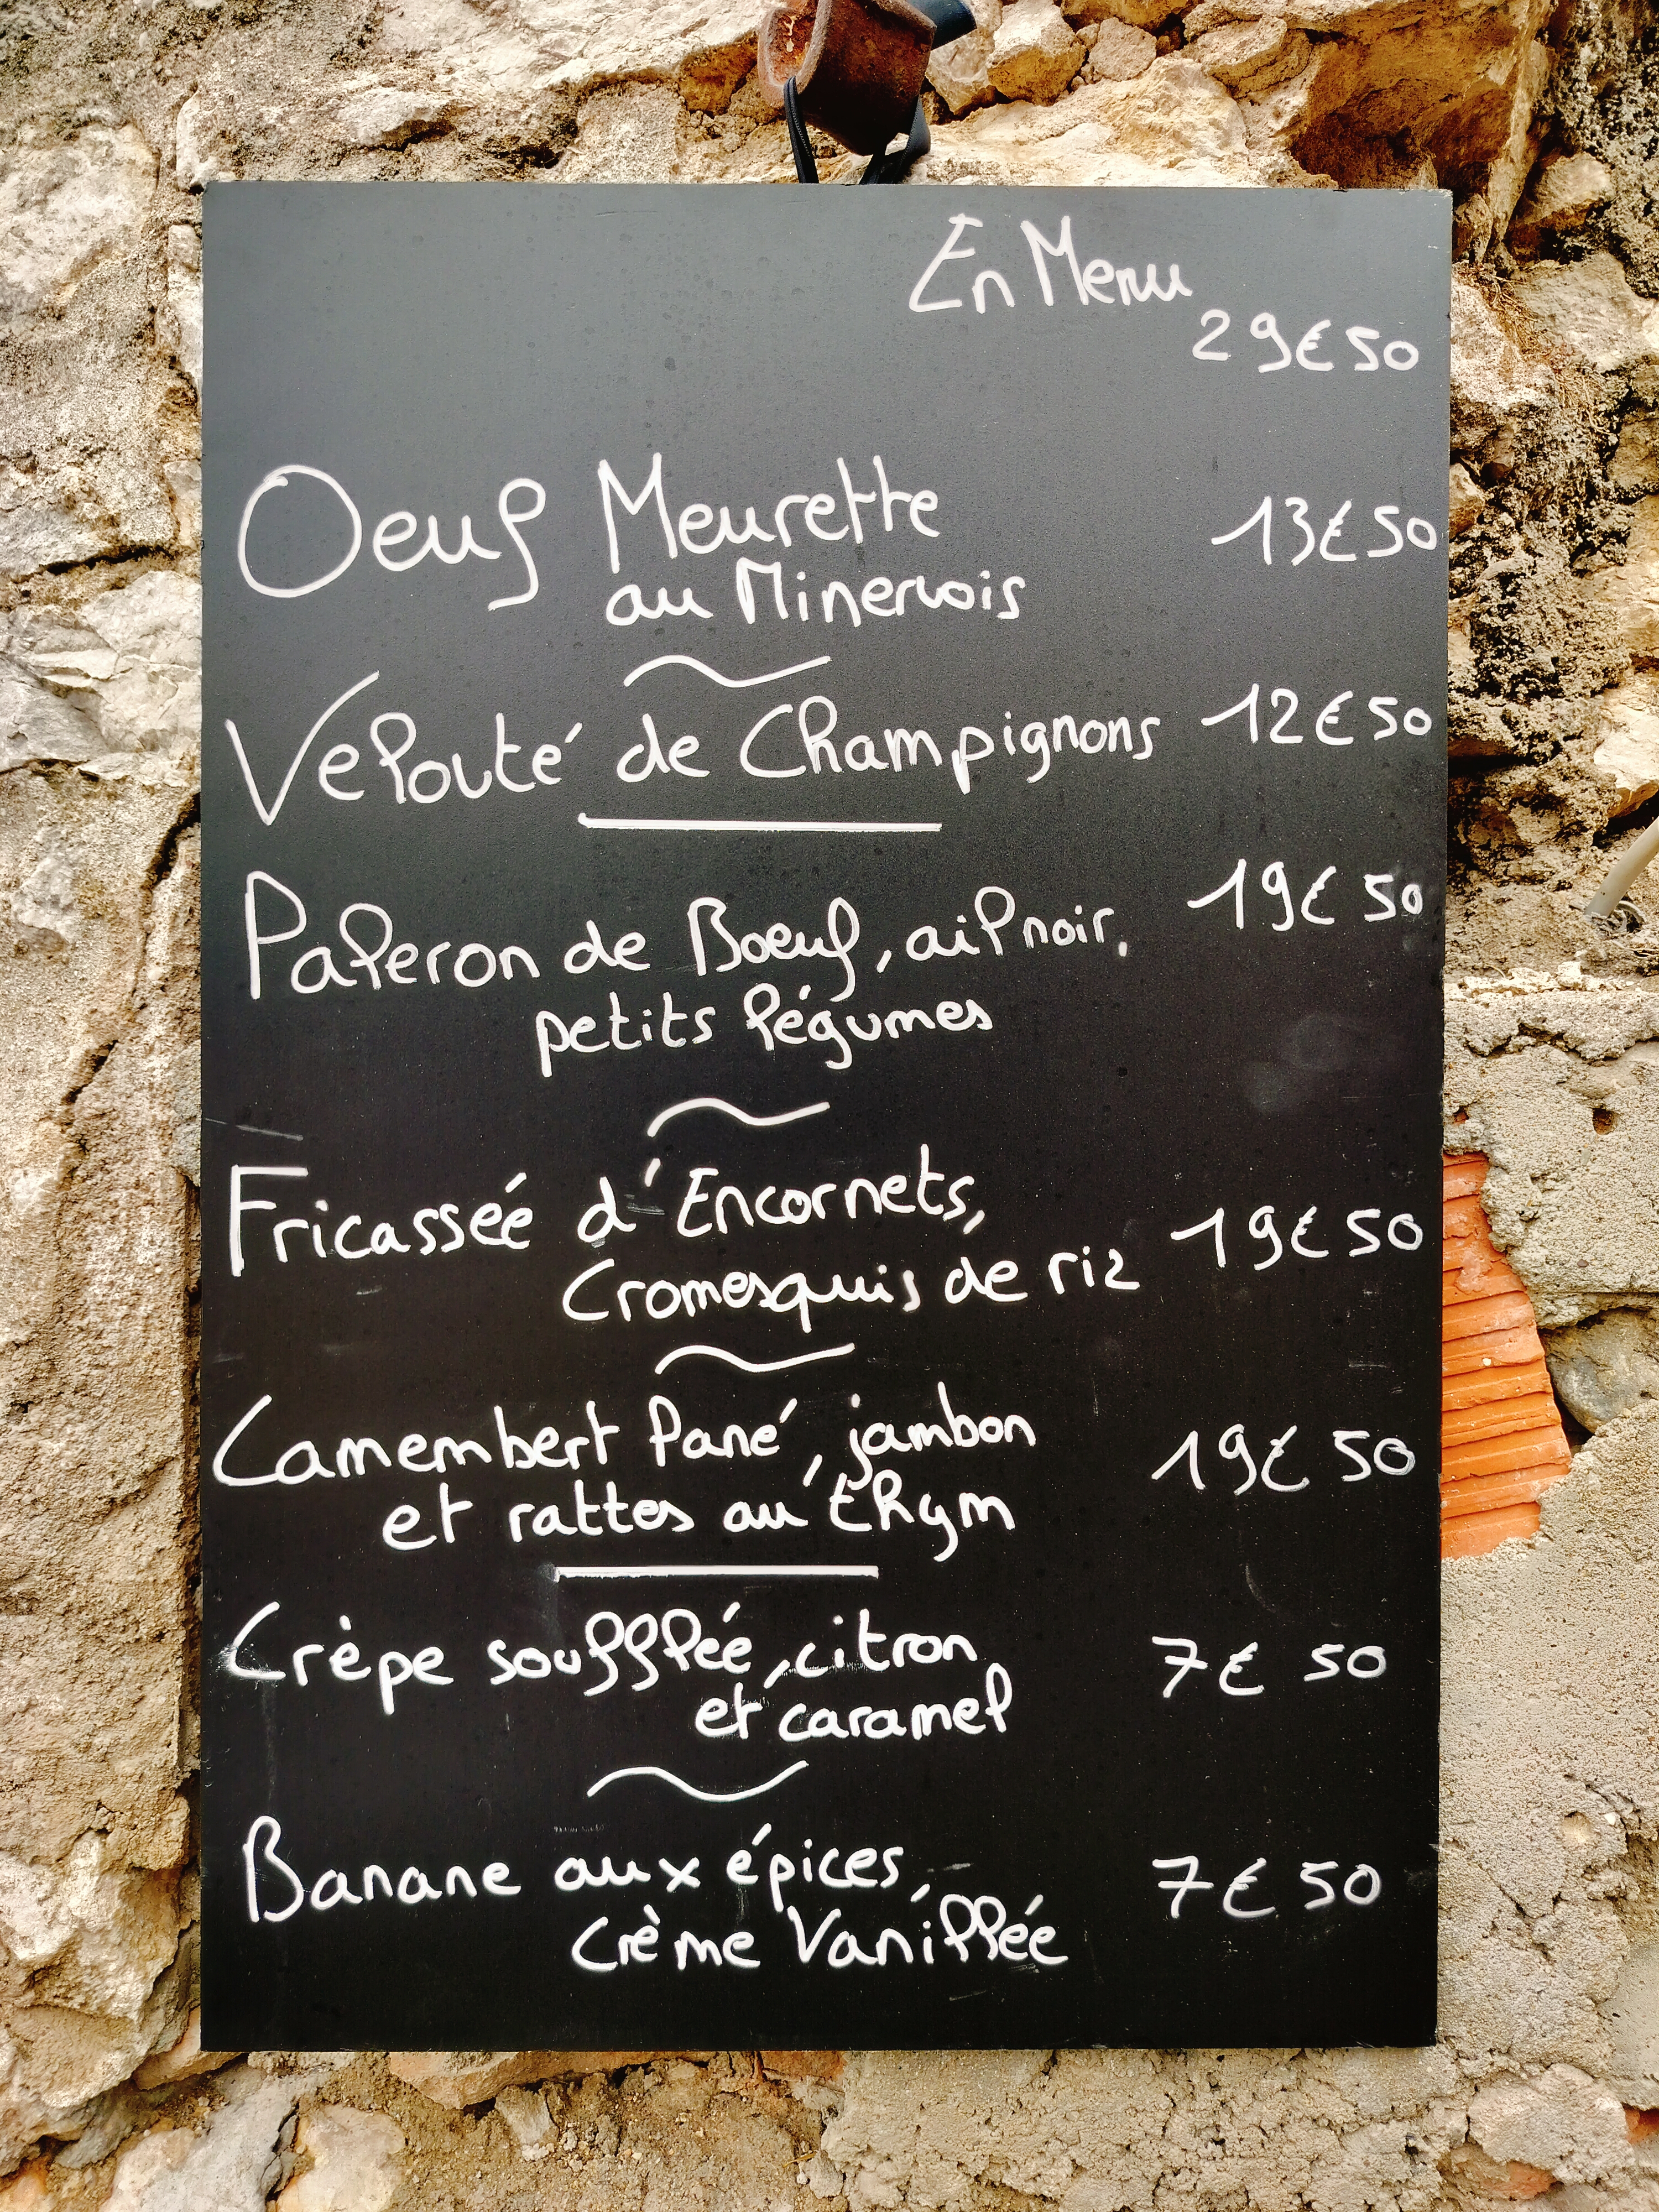 En Menu
29€50
Oeuf Meurette 13€50
au Minervois
Velouté de Champignons 12€50
Paleron de Boeuf, ail noir, 19€50
petits légumes
Fricassée d'Encornets, 19€50
Cromesquis de riz
Camembert Pané, jambon 19€50
et rattes au thym
Crèpe soufflée, citron 7€50
et caramel
Banane aux épices, 7€50
Crème Vanillée